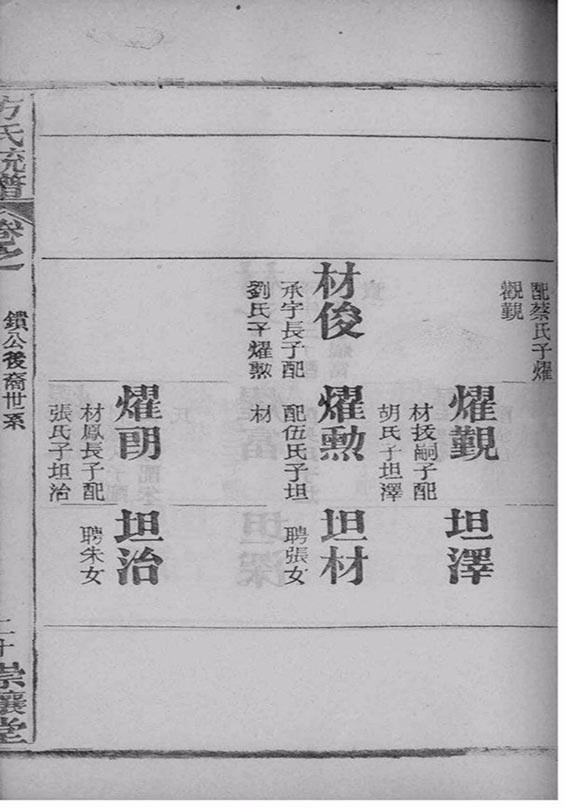 配蔡氏子耀
觀覲
耀覲
材技嗣子配
胡氏子坦澤
坦澤
材俊
承宇長子配
劉氏子耀勲
耀勲
配伍氏子坦
材
坦材
聘張女
耀
材鳳長子配
張氏子坦治
坦治
聘朱女
方氏統譜
卷之一
鎖公後裔世系
二十
崇讓堂